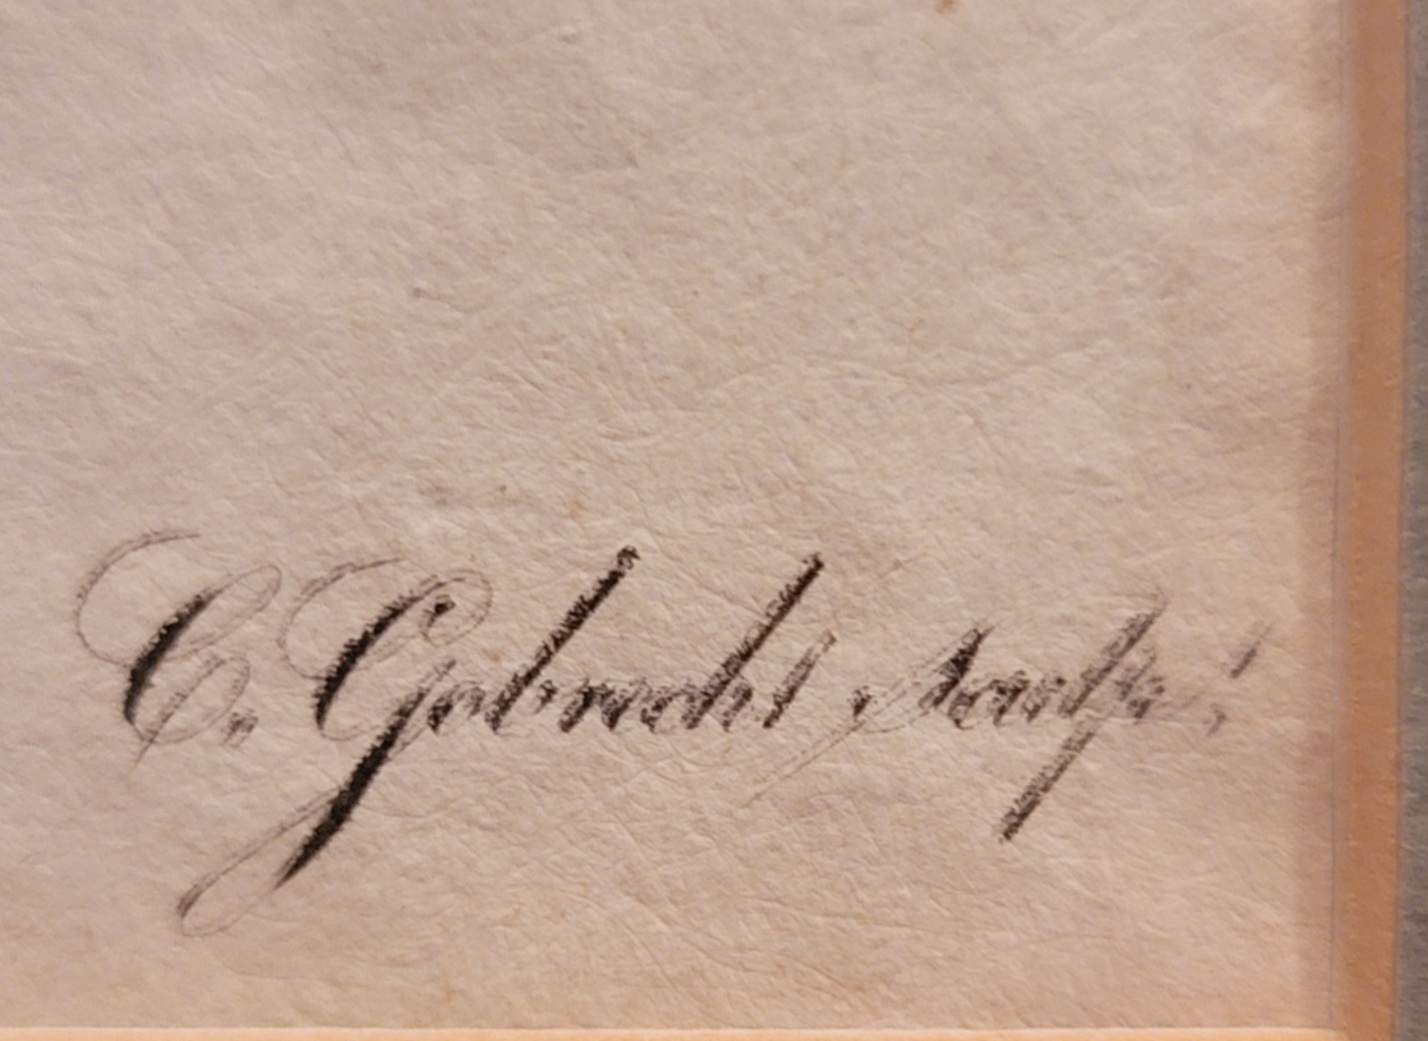 C. Gobrecht Sculp: